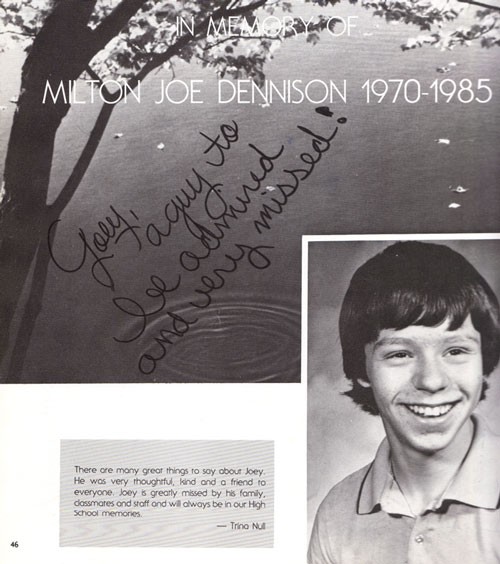 IN MEMORY OF
MILTON JOE DENNISON 1970-1985
Joey,
a guy to
be admired
and very missed!
There are many great things to say about Joey.
He was very thoughtful, kind and a friend to
everyone. Joey is greatly missed by his family,
classmates and staff and will always be in our High
School memories.
— Trina Null
46